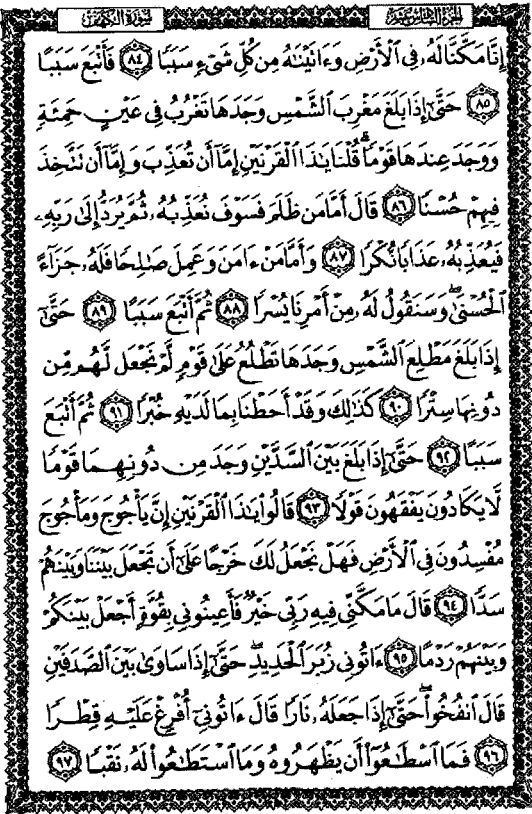 سورة الكهف الجزء السادس عشر
إِنَّا مَكَّنَّا لَهُۥ فِى ٱلْأَرْضِ وَءَاتَيْنَـٰهُ مِن كُلِّ شَىْءٍ سَبَبًا ٨٤ فَأَتْبَعَ سَبَبًا
٨٥ حَتَّىٰٓ إِذَا بَلَغَ مَغْرِبَ ٱلشَّمْسِ وَجَدَهَا تَغْرُبُ فِى عَيْنٍ حَمِئَةٍ
وَوَجَدَ عِندَهَا قَوْمًا ۗ قُلْنَا يَـٰذَا ٱلْقَرْنَيْنِ إِمَّآ أَن تُعَذِّبَ وَإِمَّآ أَن تَتَّخِذَ
فِيهِمْ حُسْنًا ٨٦ قَالَ أَمَّا مَن ظَلَمَ فَسَوْفَ نُعَذِّبُهُۥ ثُمَّ يُرَدُّ إِلَىٰ رَبِّهِۦ
فَيُعَذِّبُهُۥ عَذَابًا نُّكْرًا ٨٧ وَأَمَّا مَنْ ءَامَنَ وَعَمِلَ صَـٰلِحًا فَلَهُۥ جَزَآءً
ٱلْحُسْنَىٰ ۖ وَسَنَقُولُ لَهُۥ مِنْ أَمْرِنَا يُسْرًا ٨٨ ثُمَّ أَتْبَعَ سَبَبًا ٨٩ حَتَّىٰٓ
إِذَا بَلَغَ مَطْلِعَ ٱلشَّمْسِ وَجَدَهَا تَطْلُعُ عَلَىٰ قَوْمٍ لَّمْ نَجْعَل لَّهُم مِّن
دُونِهَا سِتْرًا ٩٠ كَذَٰلِكَ وَقَدْ أَحَطْنَا بِمَا لَدَيْهِ خُبْرًا ٩١ ثُمَّ أَتْبَعَ
سَبَبًا ٩٢ حَتَّىٰٓ إِذَا بَلَغَ بَيْنَ ٱلسَّدَّيْنِ وَجَدَ مِن دُونِهِمَا قَوْمًا
لَّا يَكَادُونَ يَفْقَهُونَ قَوْلًا ٩٣ قَالُوا۟ يَـٰذَا ٱلْقَرْنَيْنِ إِنَّ يَأْجُوجَ وَمَأْجُوجَ
مُفْسِدُونَ فِى ٱلْأَرْضِ فَهَلْ نَجْعَلُ لَكَ خَرْجًا عَلَىٰٓ أَن تَجْعَلَ بَيْنَنَا وَبَيْنَهُمْ
سَدًّا ٩٤ قَالَ مَا مَكَّنِّى فِيهِ رَبِّى خَيْرٌ فَأَعِينُونِى بِقُوَّةٍ أَجْعَلْ بَيْنَكُمْ
وَبَيْنَهُمْ رَدْمًا ٩٥ ءَاتُونِى زُبَرَ ٱلْحَدِيدِ ۖ حَتَّىٰٓ إِذَا سَاوَىٰ بَيْنَ ٱلصَّدَفَيْنِ
قَالَ ٱنفُخُوا۟ ۖ حَتَّىٰٓ إِذَا جَعَلَهُۥ نَارًا قَالَ ءَاتُونِىٓ أُفْرِغْ عَلَيْهِ قِطْرًا
٩٦ فَمَا ٱسْطَـٰعُوٓا۟ أَن يَظْهَرُوهُ وَمَا ٱسْتَطَـٰعُوا۟ لَهُۥ نَقْبًا ٩٧